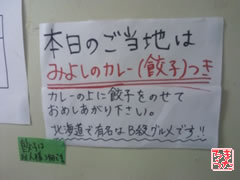 本日のご当地は
みよしのカレー(餃子)つき
カレーの上に餃子をのせて
おめしあがり下さい。
北海道で有名なB級グルメです!!